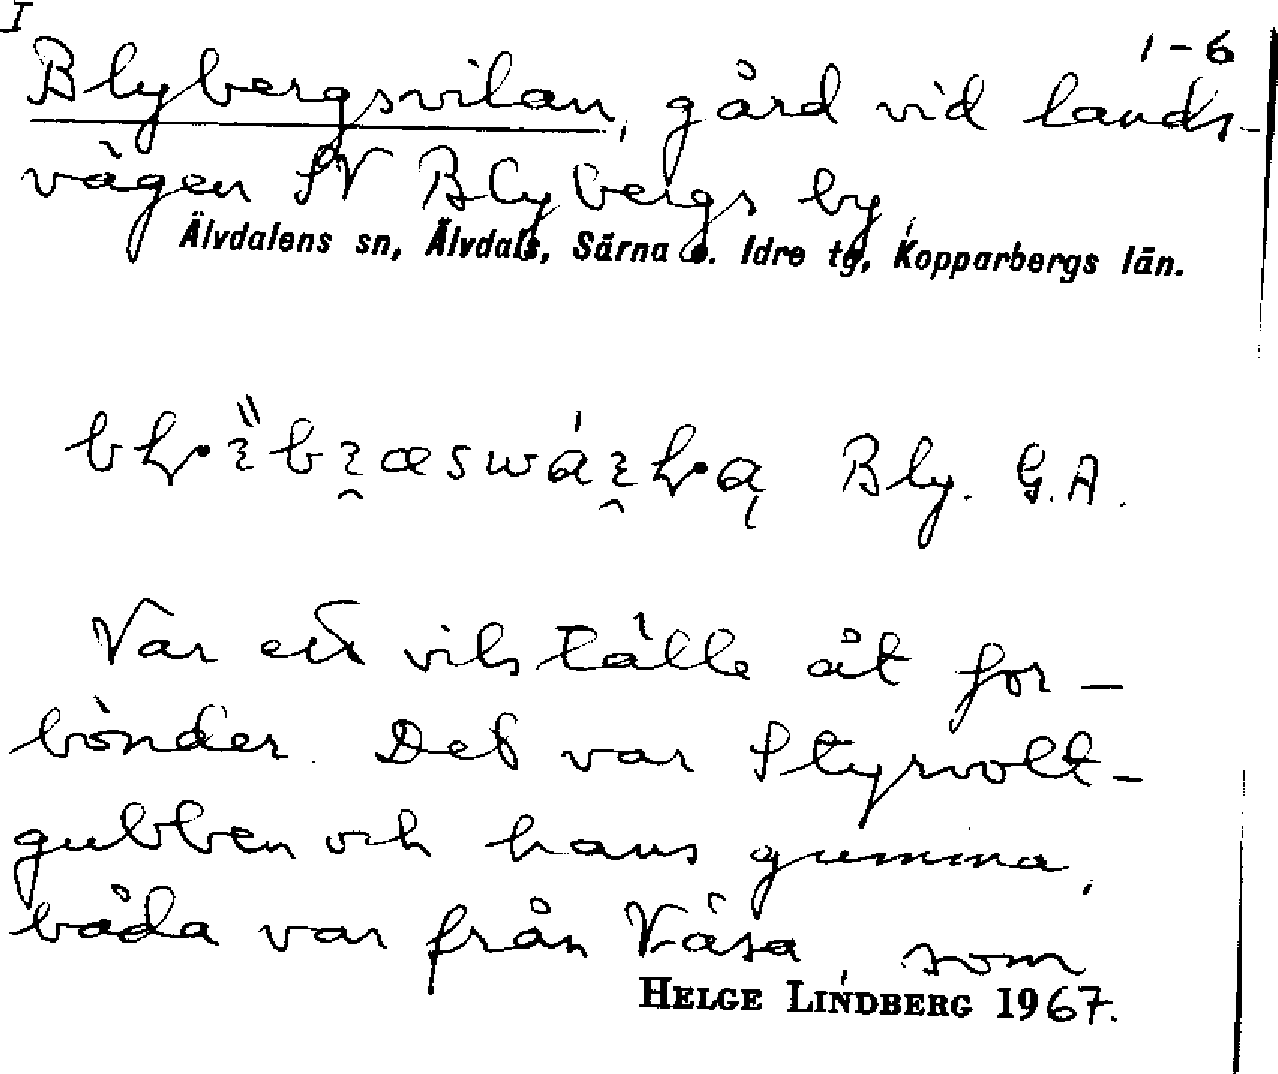 I
1-6
Blybergsvilan, gård vid lands-
vägen SV Blybergs by,
Älvdalens sn, Älvdals, Särna o. Idre tg, Kopparbergs län.
Bly. G.A.
Var ett vilställe åt for-
bönder. Det var Styrvolt-
gubben och hans gumma,
båda var från Våsa, som
HELGE LINDBERG 1967.